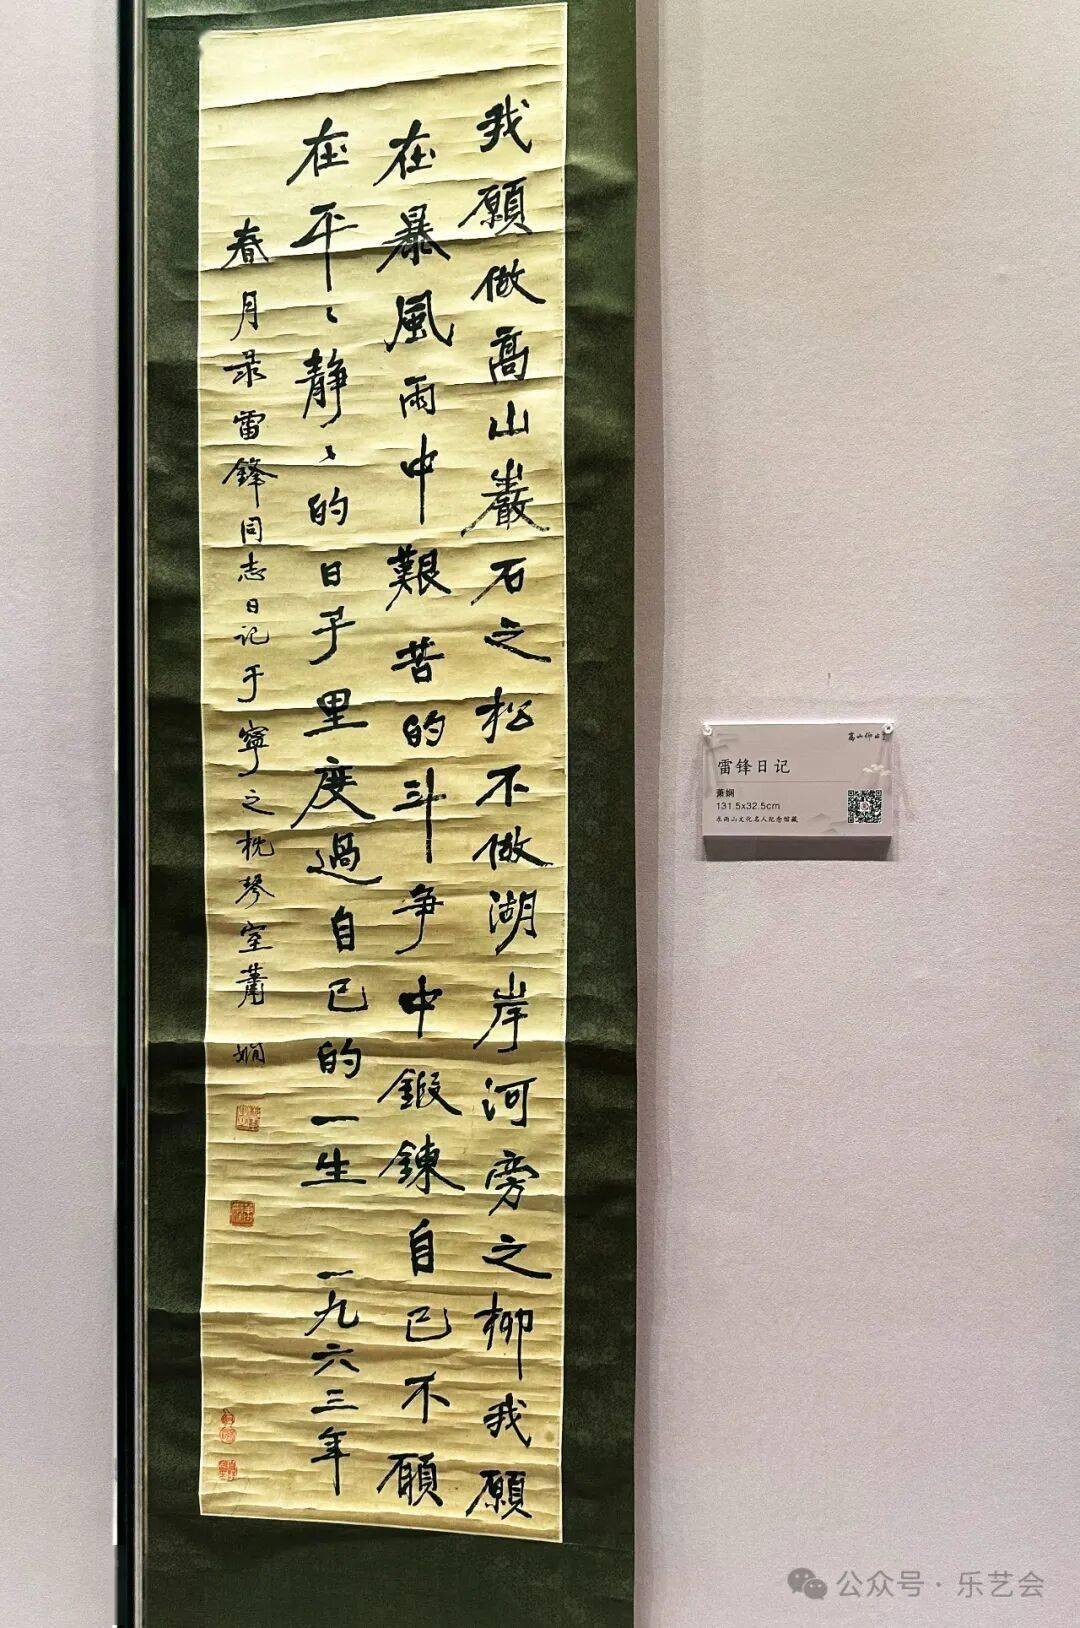 我願做高山巖石之松不做湖岸河旁之柳我願
在暴風雨中艱苦的斗争中鍛鍊自己不願
在平〻静〻的日子里度過自己的一生 一九六三年
春月录雷鋒同志日记于寧之枕琴室蕭嫻
高山仰止
雷锋日记
萧娴
131.5x32.5cm
求雨山文化名人纪念馆藏
公众号·乐艺会